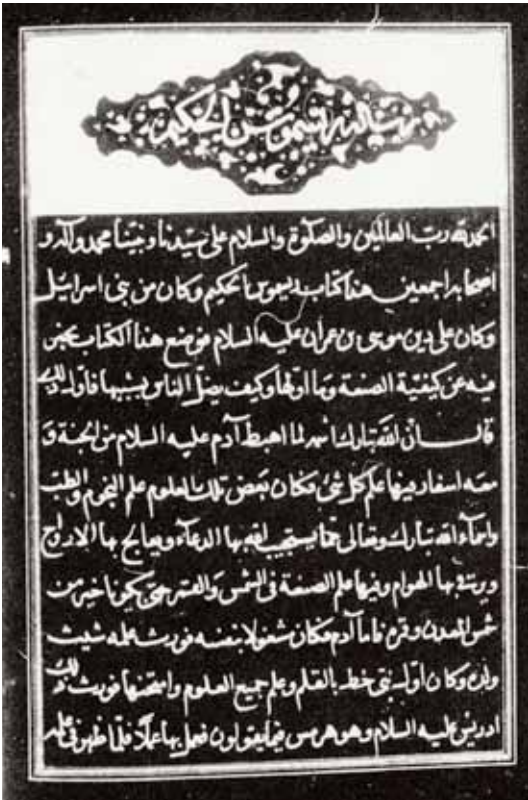 رسالة ديموس الحكيم
الحمد لله رب العالمين والصلوة والسلام على سيدنا ونبينا محمد وآله و
اصحابه اجمعين هذا كتاب ديموس الحكيم وكان من بنى اسرائيل
وكان على دين موسى بن عمران عليه السلام فوضع هذا الكتاب يخبر
فيه عن كيفية الصنعة وما اولها وكيف يضل الناس بسببها فاول ذلك
قال ان الله تبارك اسمه لما اهبط آدم عليه السلام من الجنة و
معه اسفار فيها علم كل شئ فكان بعض تلك العلوم علم النجوم والطب
واسماء الله تبارك وتعالى مما يستجيب الله بها الدعاء ويعالج بها الارواح
ويرقى بها الهوام وفيها علم الصنعة فى الشمس والقمر حتى يكونا خير من
شمس المعدن وقمره فاما آدم فكان مشغولا بنفسه فورث علمه شيث
ولده وكان اول نبى خط بالقلم وعلم جميع العلوم وامتحنها فورث ذلك
ادريس عليه السلام وهو هرمس فيما يقولون فعمل بها عملا فلما ظهر فى علمه